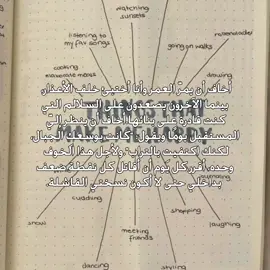 watching
sunsets
listening to
my fav songs
going on walks
cooking
drawing
أخاف أن يمرّ العمر وأنا أختبئ خلف الأعذار،
بينما الآخرون يصعدون على السلالم التي
كنت قادرة على بنائها. أخاف أن ينظر إليّ
المستقبل يوما ويقول: كانت بوسعك الجبال،
لكنك اكتفيت بالتراب. ولأجل هذا الخوف
وحده، أقرر كل يوم أن أقاتل كل نقطة ضعف
بداخلي حتى لا أكون نسختي الفاشلة.
THINGS THAT
MAKE ME HAPPY
cuddling
shopping
snow
laughing
meeting
friends
dancing
styling